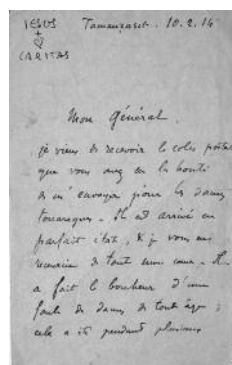 IESUS
+
♡
CARITAS
Tamanrasset. 10.2.14
Mon Général
je viens de recevoir le colis postal
que vous avez eu la bonté
de m'envoyer pour les dames
touaregues. Il est arrivé en
parfait état, & je vous en
remercie de tout mon cœur. Il
a fait le bonheur d'une
foule de dames de tout âge ;
cela a été pendant plusieurs